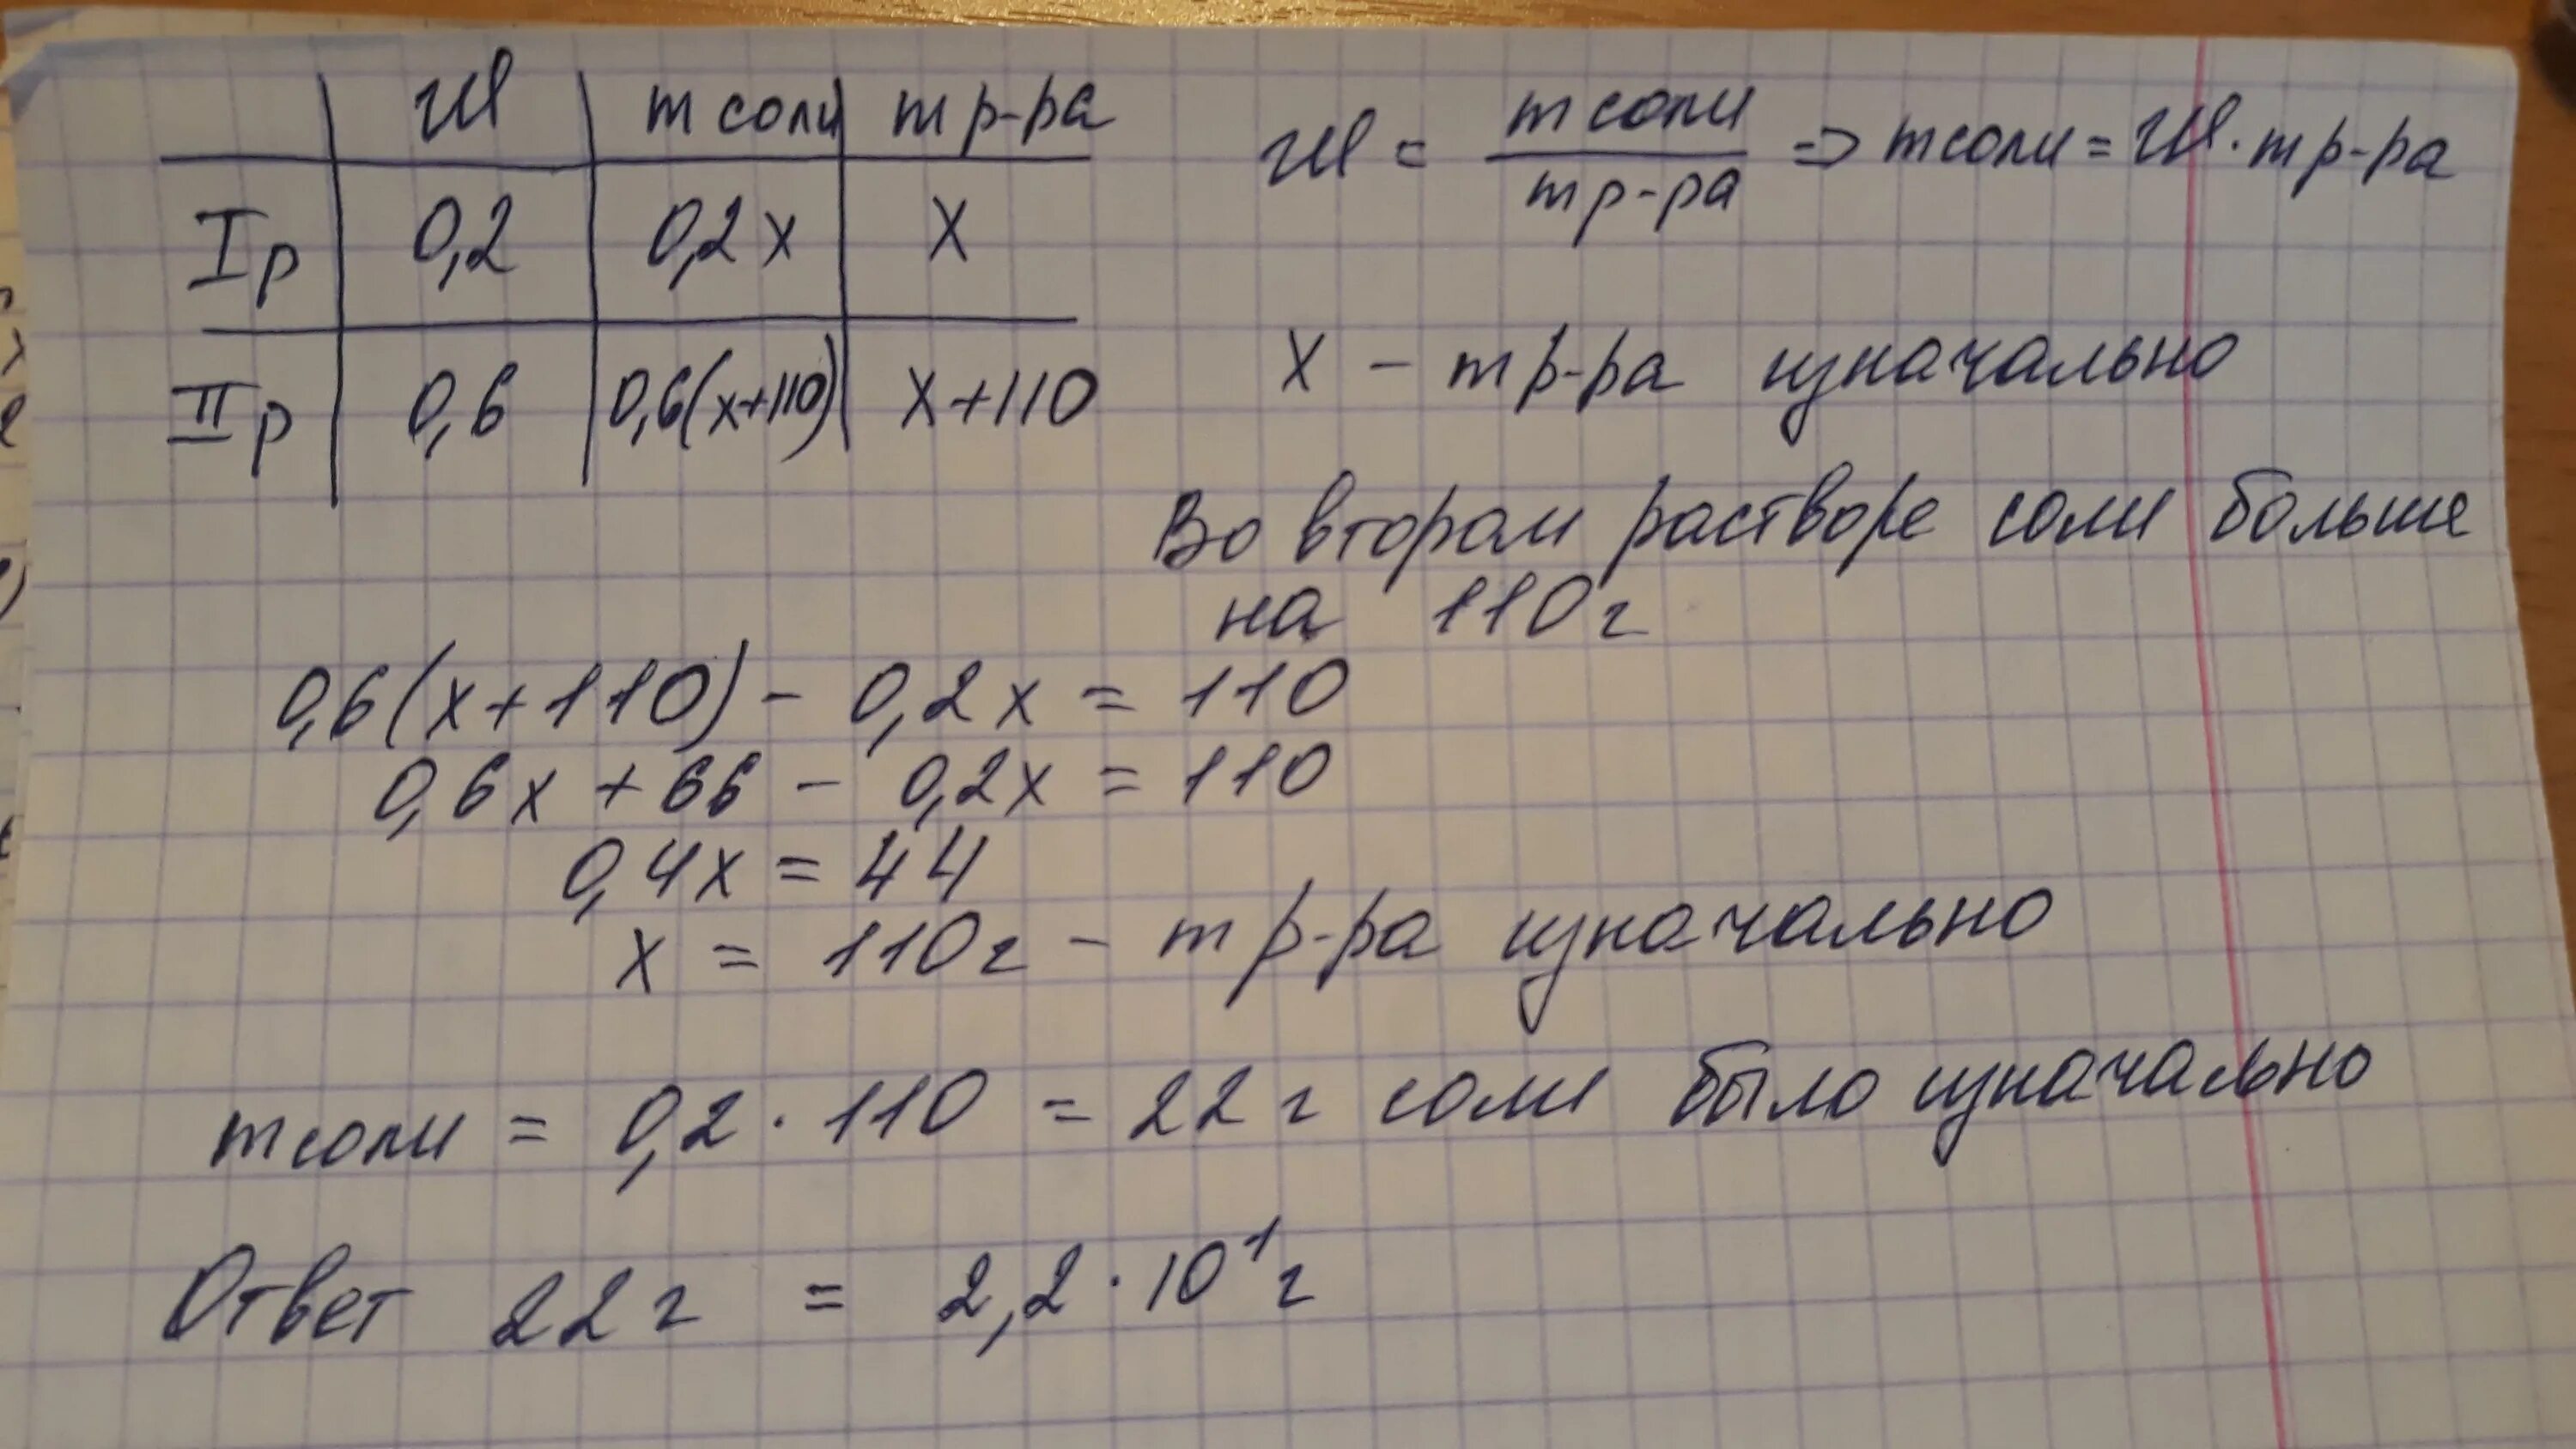 w m соли m р-ра
I р 0,2 0,2x x
II р 0,6 0,6(x+110) x+110
w = m соли / m р-ра => m соли = w · m р-ра
x - m р-ра изначально
Во втором растворе соли больше
на 110 г
0,6(x+110) - 0,2x = 110
0,6x + 66 - 0,2x = 110
0,4x = 44
x = 110 г - m р-ра изначально
m соли = 0,2 · 110 = 22 г соли было изначально
Ответ 22 г = 2,2 · 10¹ г